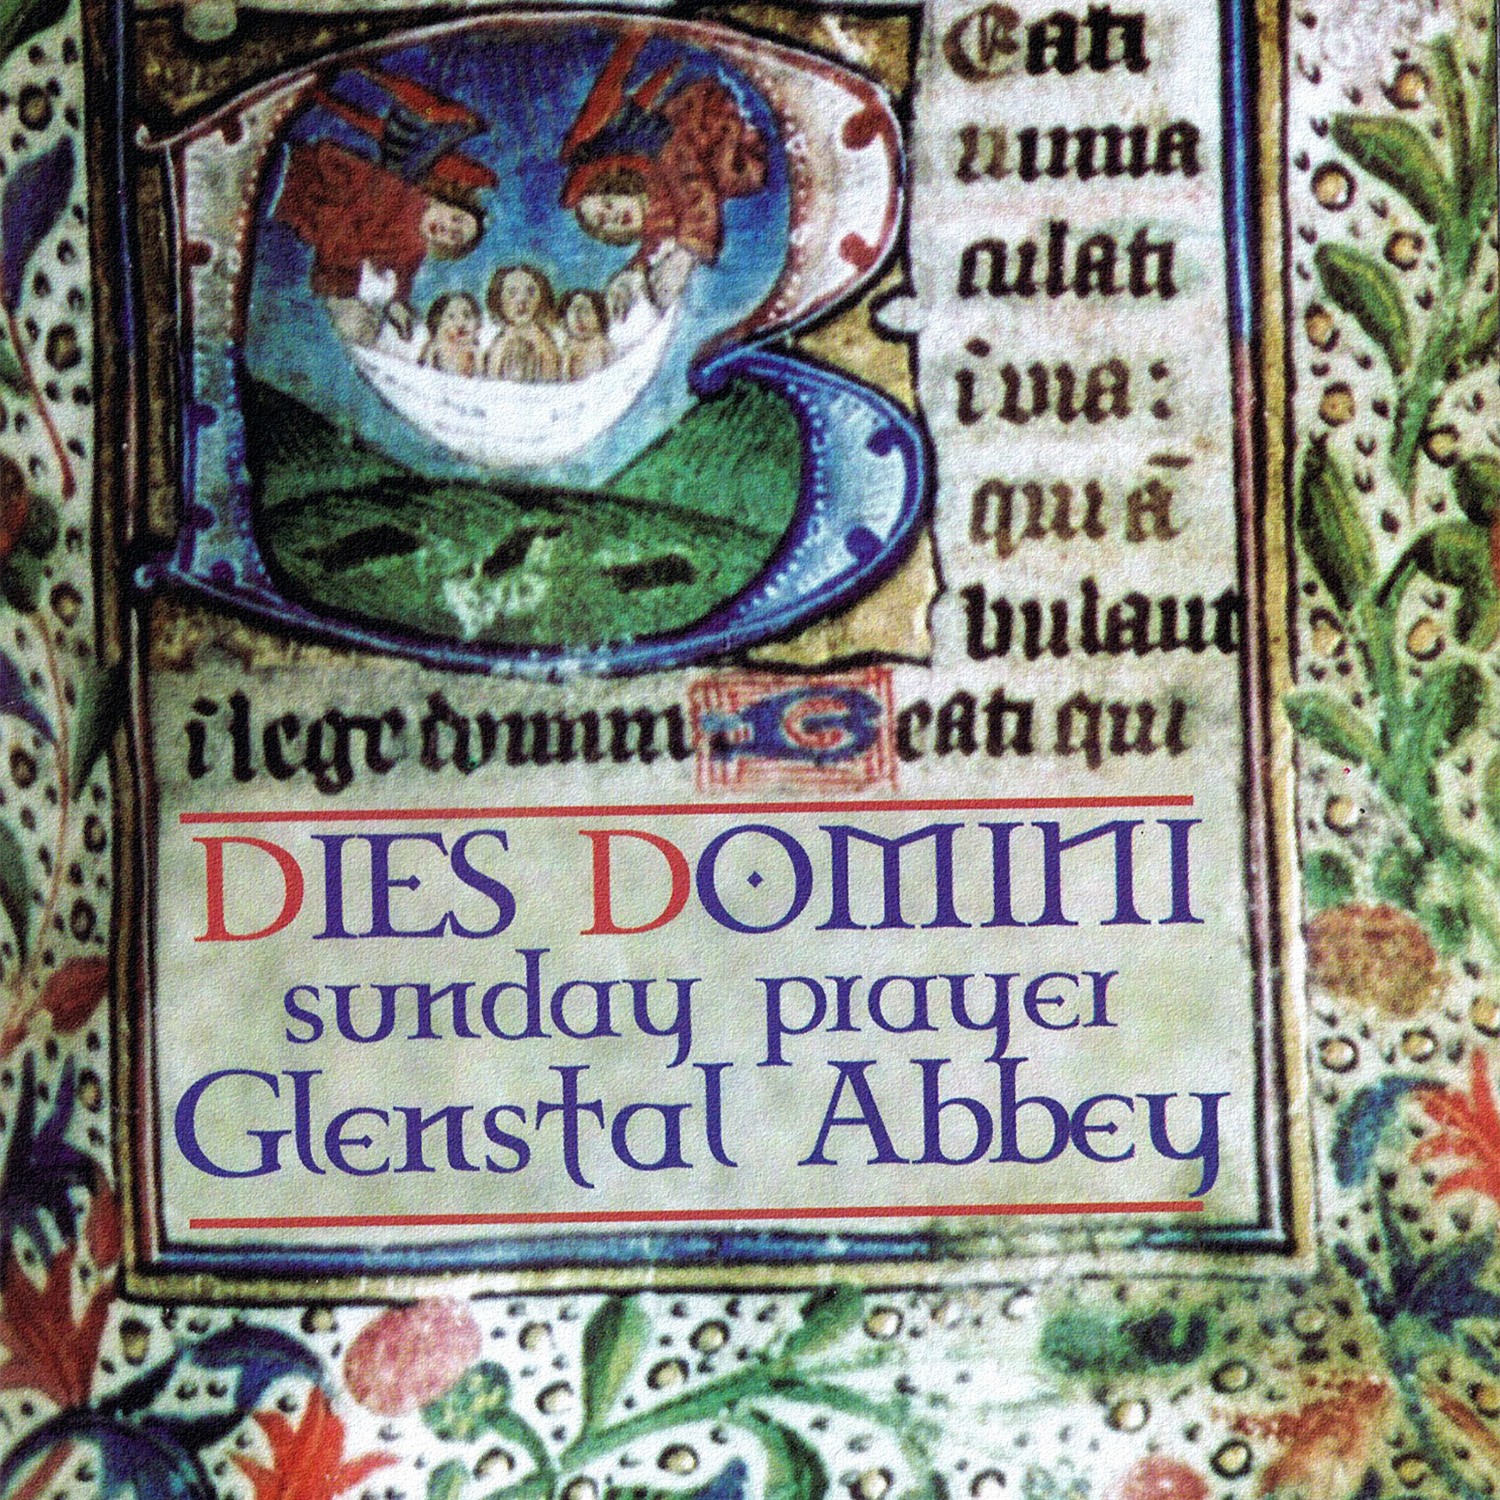 Beati
imma
culati
i uia:
qui ā
bulant
i lege domini Beati qui
DIES DOMINI
sunday prayer
Glenstal Abbey